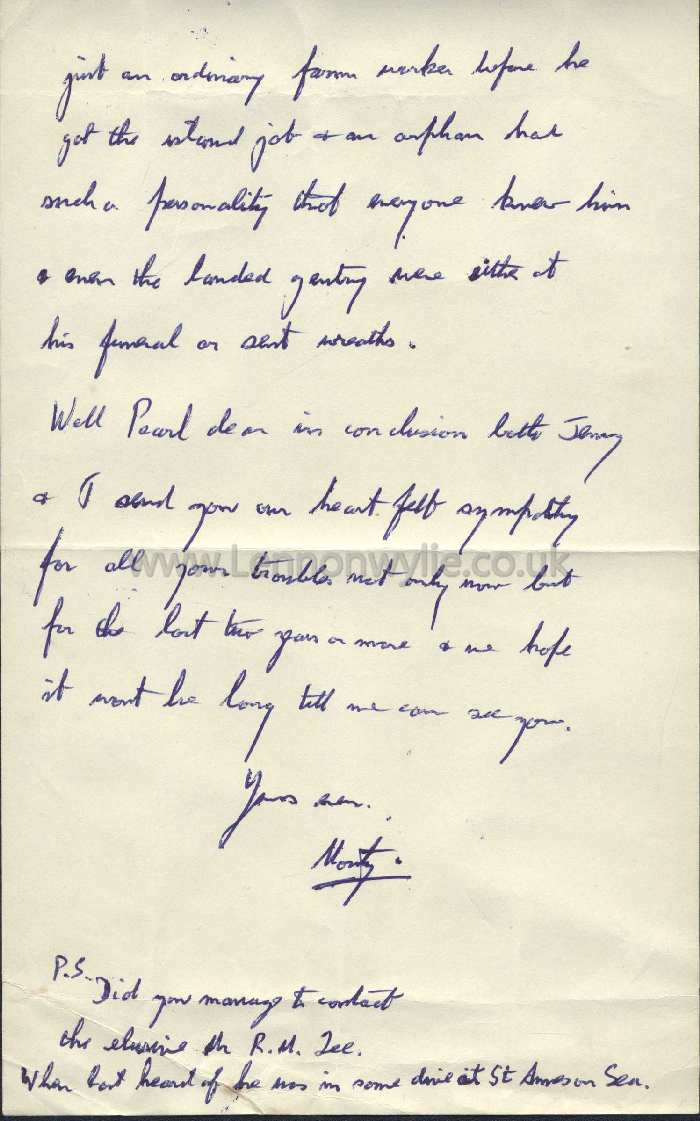 just an ordinary farm worker before he
got the island job + an orphan had
such a personality that everyone knew him
+ even the landed gentry were either at
his funeral or sent wreaths.
Well Pearl dear in conclusion both Jenny
+ I send you our heart felt sympathy
www.Lennonwylie.co.uk
for all your troubles not only now but
for the last two years or more + we hope
it wont be long till we can see you.
Yours ever.
Monty.
P.S. Did you manage to contact
the elusive Mr R.M. Lee.
When last heard of he was in some dive at St Annes on Sea.